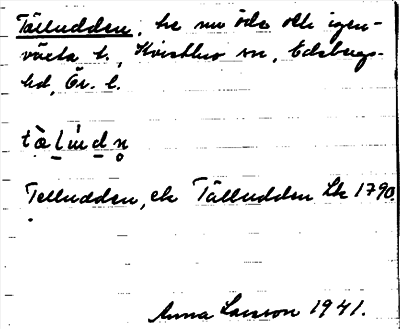 Tälludden, hr nu öde och igen-
växta t., Kvistbro sn, Edsbergs
hd, Ör. l.
tælu̇dn̥
Telludden, ek Tälludden Lk 1790.
Anna Larsson 1941.